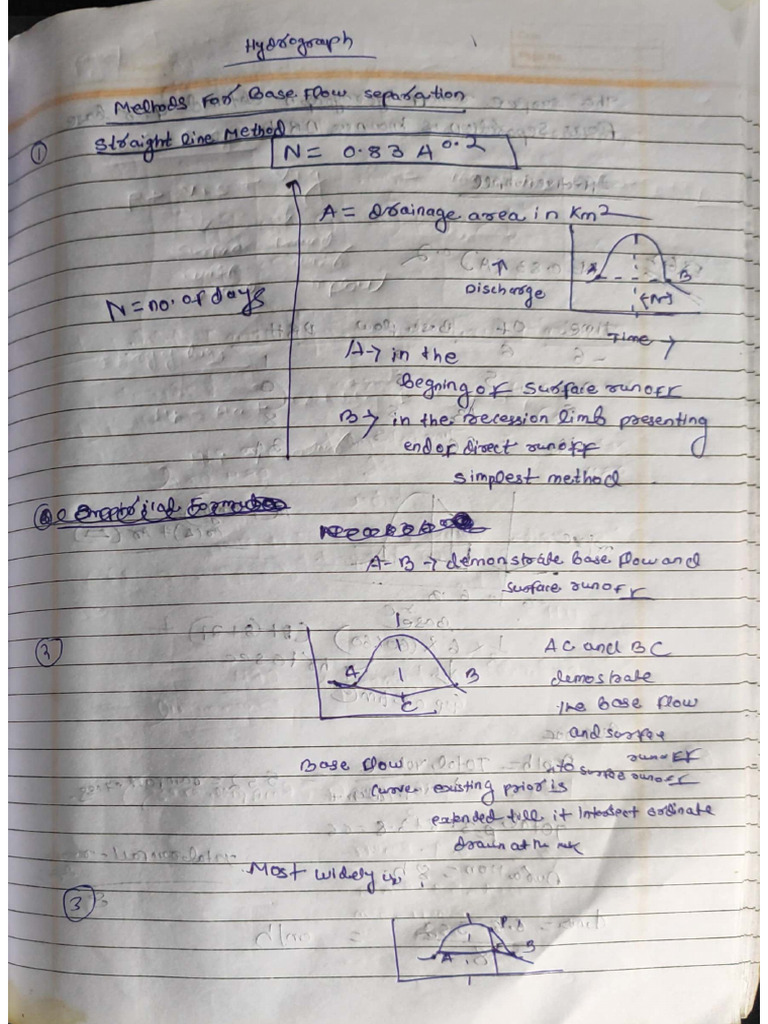 Hydrograph
Methods For Base Flow separation
① Straight line Method
N = 0.83 A^0.2
A = drainage area in Km2
Discharge
A B
(N)
N = no. of days
Time →
A → in the
Begning of surface runoff
B → in the recession limb presenting
end of direct runoff
simplest method
A-B → demonstrate base flow and
surface runoff
3
A B
C
AC and BC
demostrate
the Base flow
and surfee
runoff
Base flow
curve existing prior is
surface runoff
extended till it intersect ordinate
drawn at the
Most widely
3
A B